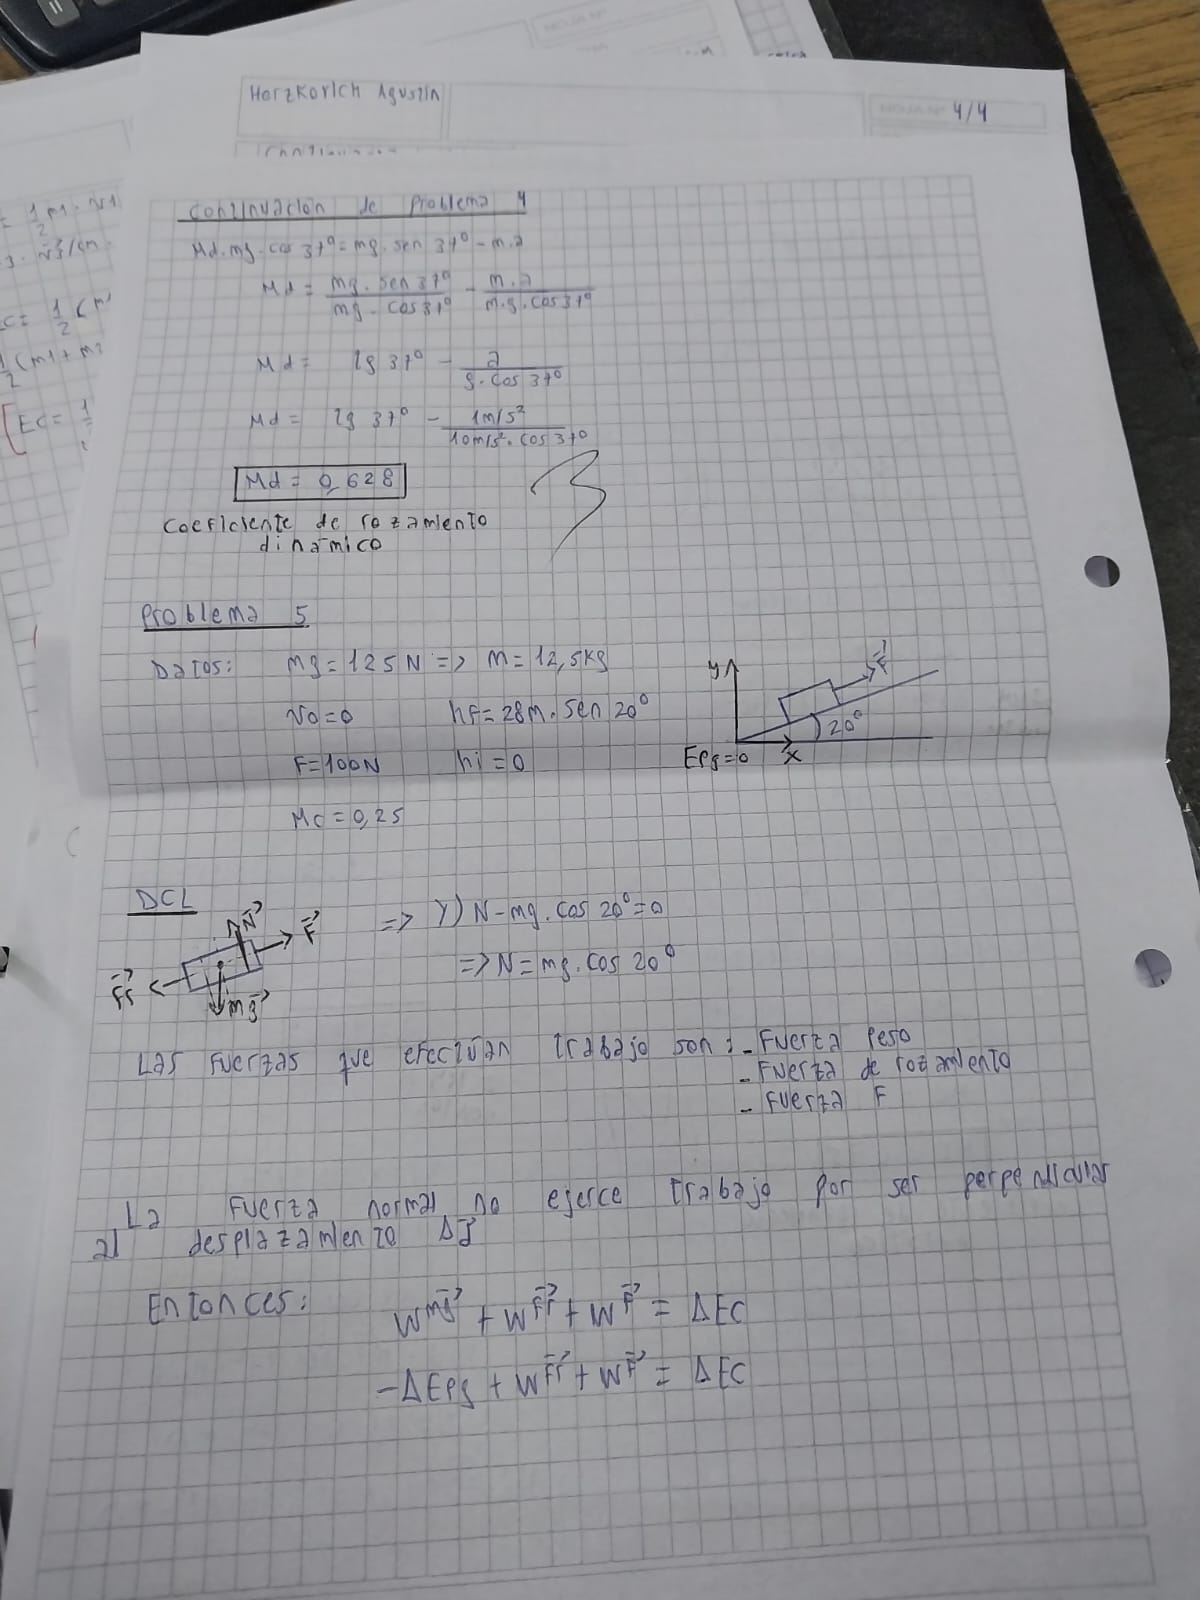 Horzkovich Agustín
4/4
Continuación de Problema 4
Md.mg.cos 37° = mg.sen 37° - m.a
Md = mg.sen 37° / mg.cos 37° - m.a / m.g.cos 37°
Md = tg 37° - a / g.cos 37°
Md = tg 37° - 1m/s² / 10m/s².cos 37°
Md = 0,628
Coeficiente de rozamiento
dinámico
Problema 5
Datos: mg = 125 N => m = 12,5 Kg
Vo = 0 hf = 28m.sen 20°
F = 100N hi = 0
Mc = 0,25
y
F
20°
Epg=0 x
DCL
N F
Fr mg
=> Y) N - mg.cos 20° = 0
=> N = mg.cos 20°
Las fuerzas que efectúan trabajo son: - Fuerza peso
- Fuerza de rozamiento
- Fuerza F
La fuerza normal no ejerce trabajo por ser perpendicular
al desplazamiento
Entonces: W^mg + W^Fr + W^F = ΔEC
-ΔEpg + W^Fr + W^F = ΔEC